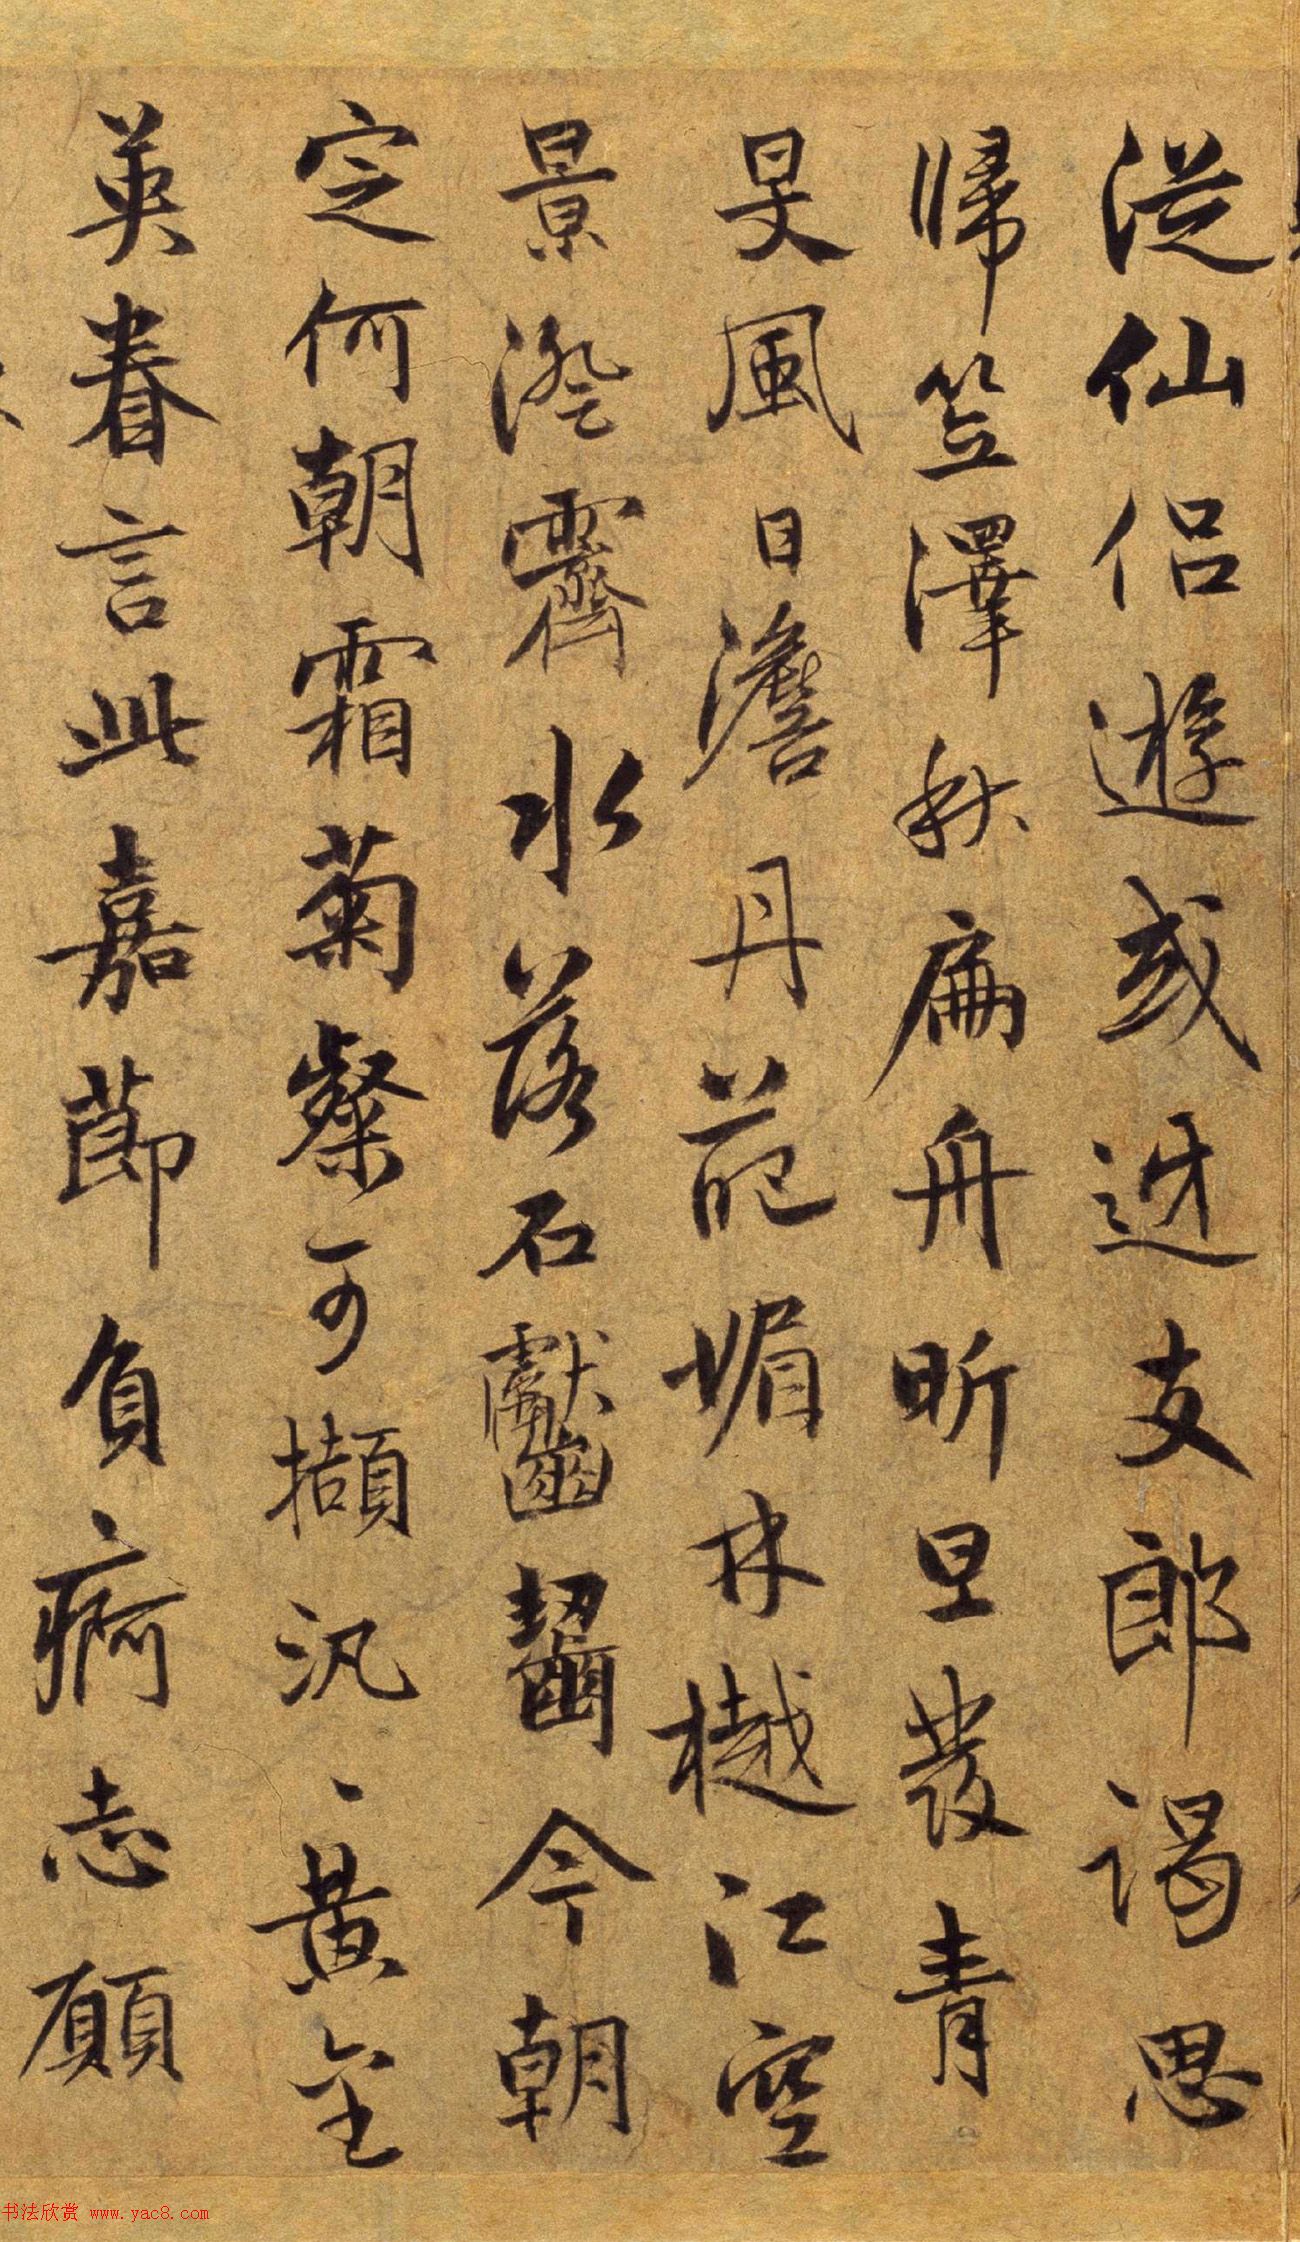 从仙侣遊或迓支郎谒思
歸笠澤秋扁舟昕旦發青
旻風日澹丹葩媚林樾江空
景澄霽水落石巘齧今朝
定何朝霜菊粲可擷汎、黄金
英眷言此嘉節負痾志願
书法欣赏 www.yac8.com